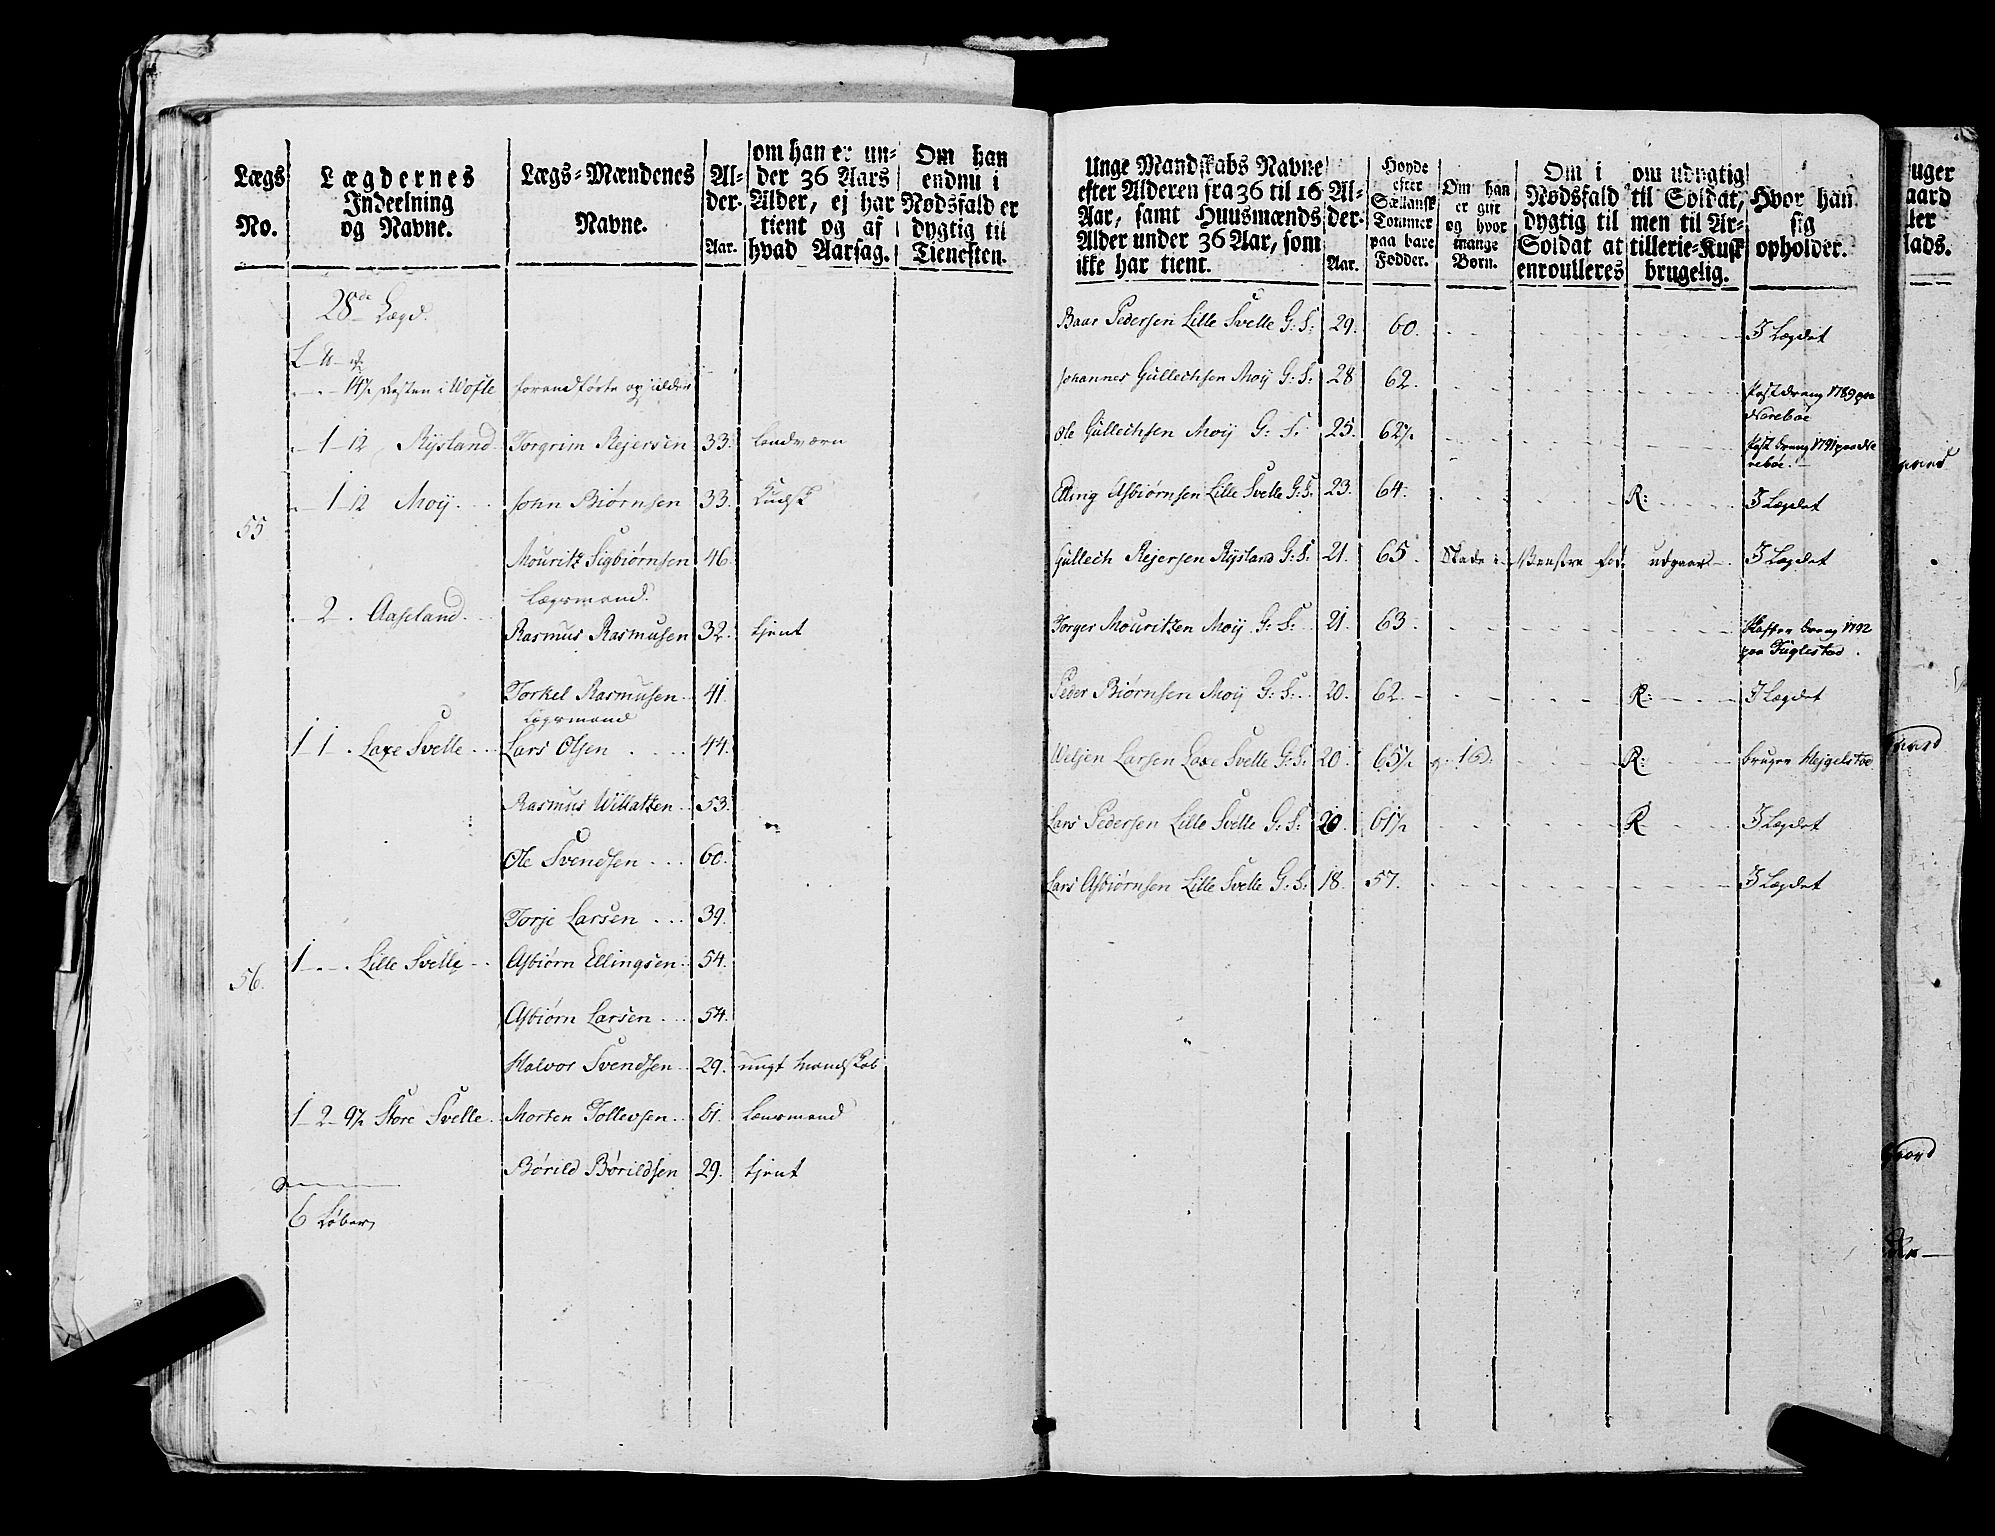 Lægs
No.
Lægdernes
Indeelning
og Navne.
Lægs-Mændenes
Navne.
Al-
der.
Aar.
om han er un-
der 36 Aars
Alder, ej har
tient og af
hvad Aarsag.
Om han
endnu i
Nødsfald er
dygtig til
Tienesten.
28de Lægd.
14½ Resten i
1 - 12 Rysland Torgrim Rejersen 33. Landværn
1 - 12 Moÿ John Biørnsen 33. Kudsk
55
Mouritz Sigbiørnsen 46.
Lægsmand
2 Aaseland
Rasmus Rasmusen 32. tjent
Torkel Rasmusen 41.
Lægsmand
1 1 Laxe Svelle Lars Olsen 44.
Rasmus Willatzen 53.
Ole Svendsen 60.
Torje Larsen 39.
1 Lille Svelle Asbiørn Ellingsen 54.
56.
Asbiørn Larsen 54.
Halvor Svendsen 29. ungt Mandskab
1 - 2 - 9½ Store Svelle Morten Tollevsen 61. Lensmand
Børild Børildsen 29. tjent
6 Løber
Unge Mandskabs Navne
efter Alderen fra 36 til 16
Aar, samt Huusmænds
Alder under 36 Aar, som
ikke har tient.
Al-
der.
Aar.
Høyde
efter
Siællansk
Tommer
paa bare
Fødder.
Om han
er gift
og hvor
mange
Børn.
Om i
Nødsfald
dygtig til
Soldat at
enroulleres
om udygtig
til Soldat,
men til Ar-
tillerie-Kusk
brugelig.
Hvor han
sig
opholder.
Baar Pedersen Lille Svelle G: S: 29. 60. I Lægdet
Johannes Gullechsen Moÿ G: S: 28 62. Postdreng 1789 paa
Birebøe
Ole Gullechsen Moÿ G: S: 25. 62½
Elling Asbiørnsen Lille Svelle G: S. 23. 64. R: I Lægdet
Gullech Rejersen Rysland G: S. 21. 65. Skade i Venstre fod. udgaar I Lægdet
Torger Mouritzen Moÿ G: S: 21. 63. dreng 1792
paa Fuglestad.
Peder Biørnsen Moÿ G: S: 20. 62. R: I Lægdet
Larsen Laxe Svelle G: S. 20. 65½ g. 1 B. R: bruger Hejgelstad
Lars Pedersen Lille Svelle G: S: 20. 61½ R I Lægdet
Lars Asbiørnsen Lille Svelle G: S. 18. 57. I Lægdet
uger
aard
ler
lads.